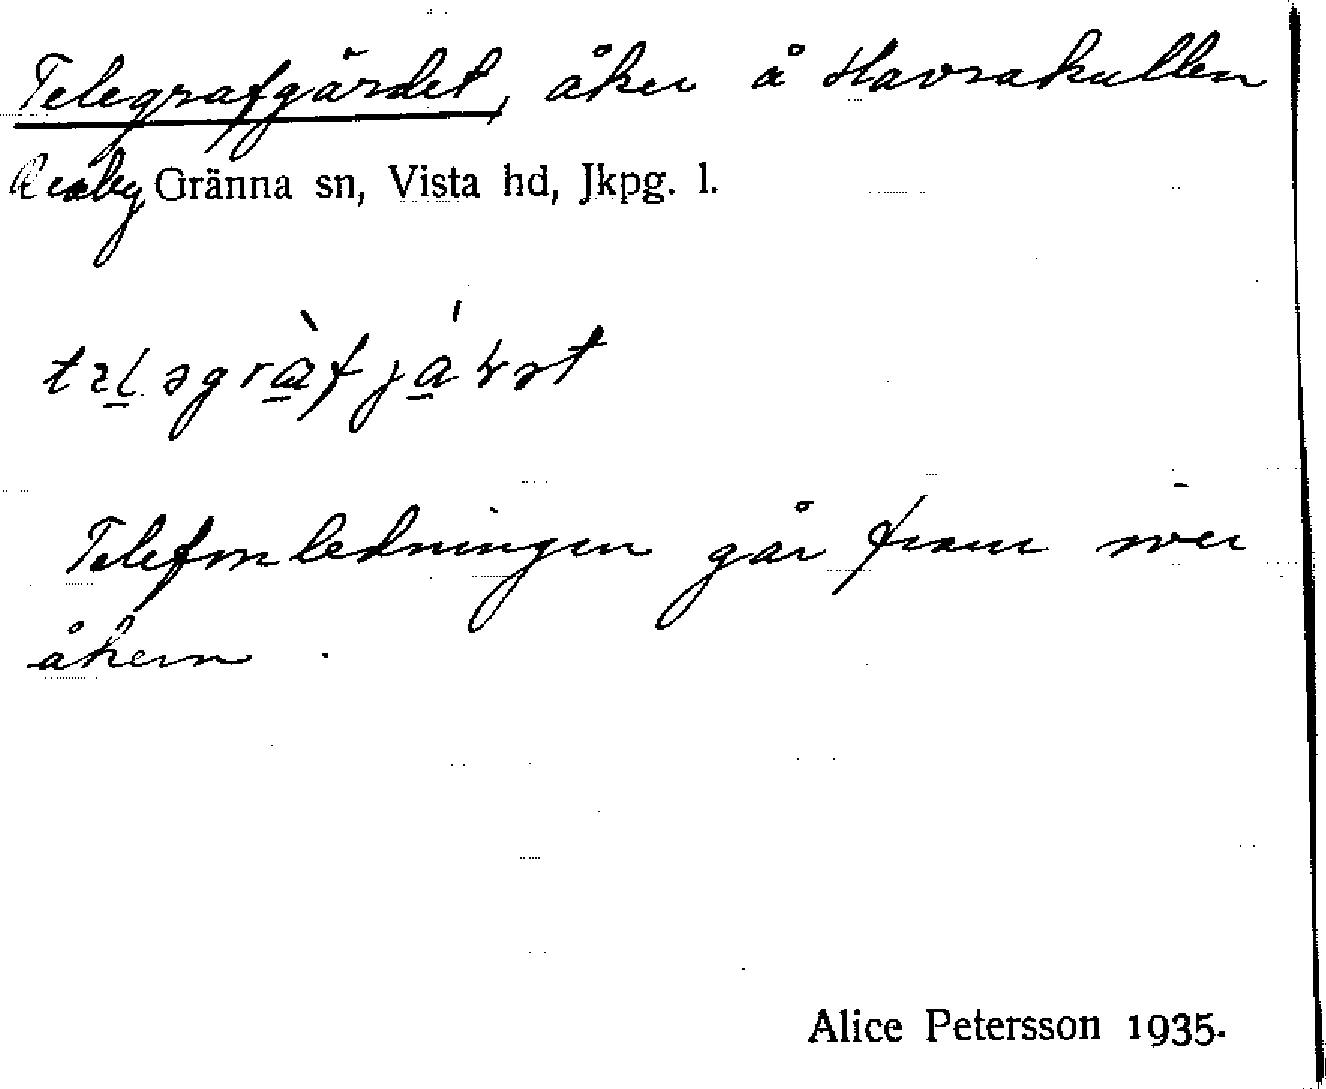 Telegrafgärdet, åker å Havrakullen
Gränna sn, Vista hd, Jkpg. l.
Telefonledningen går fram över
åkern.
Alice Petersson 1935.